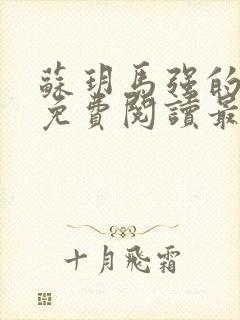 蘇玥馬強的
免費閱讀最
十月飛霜